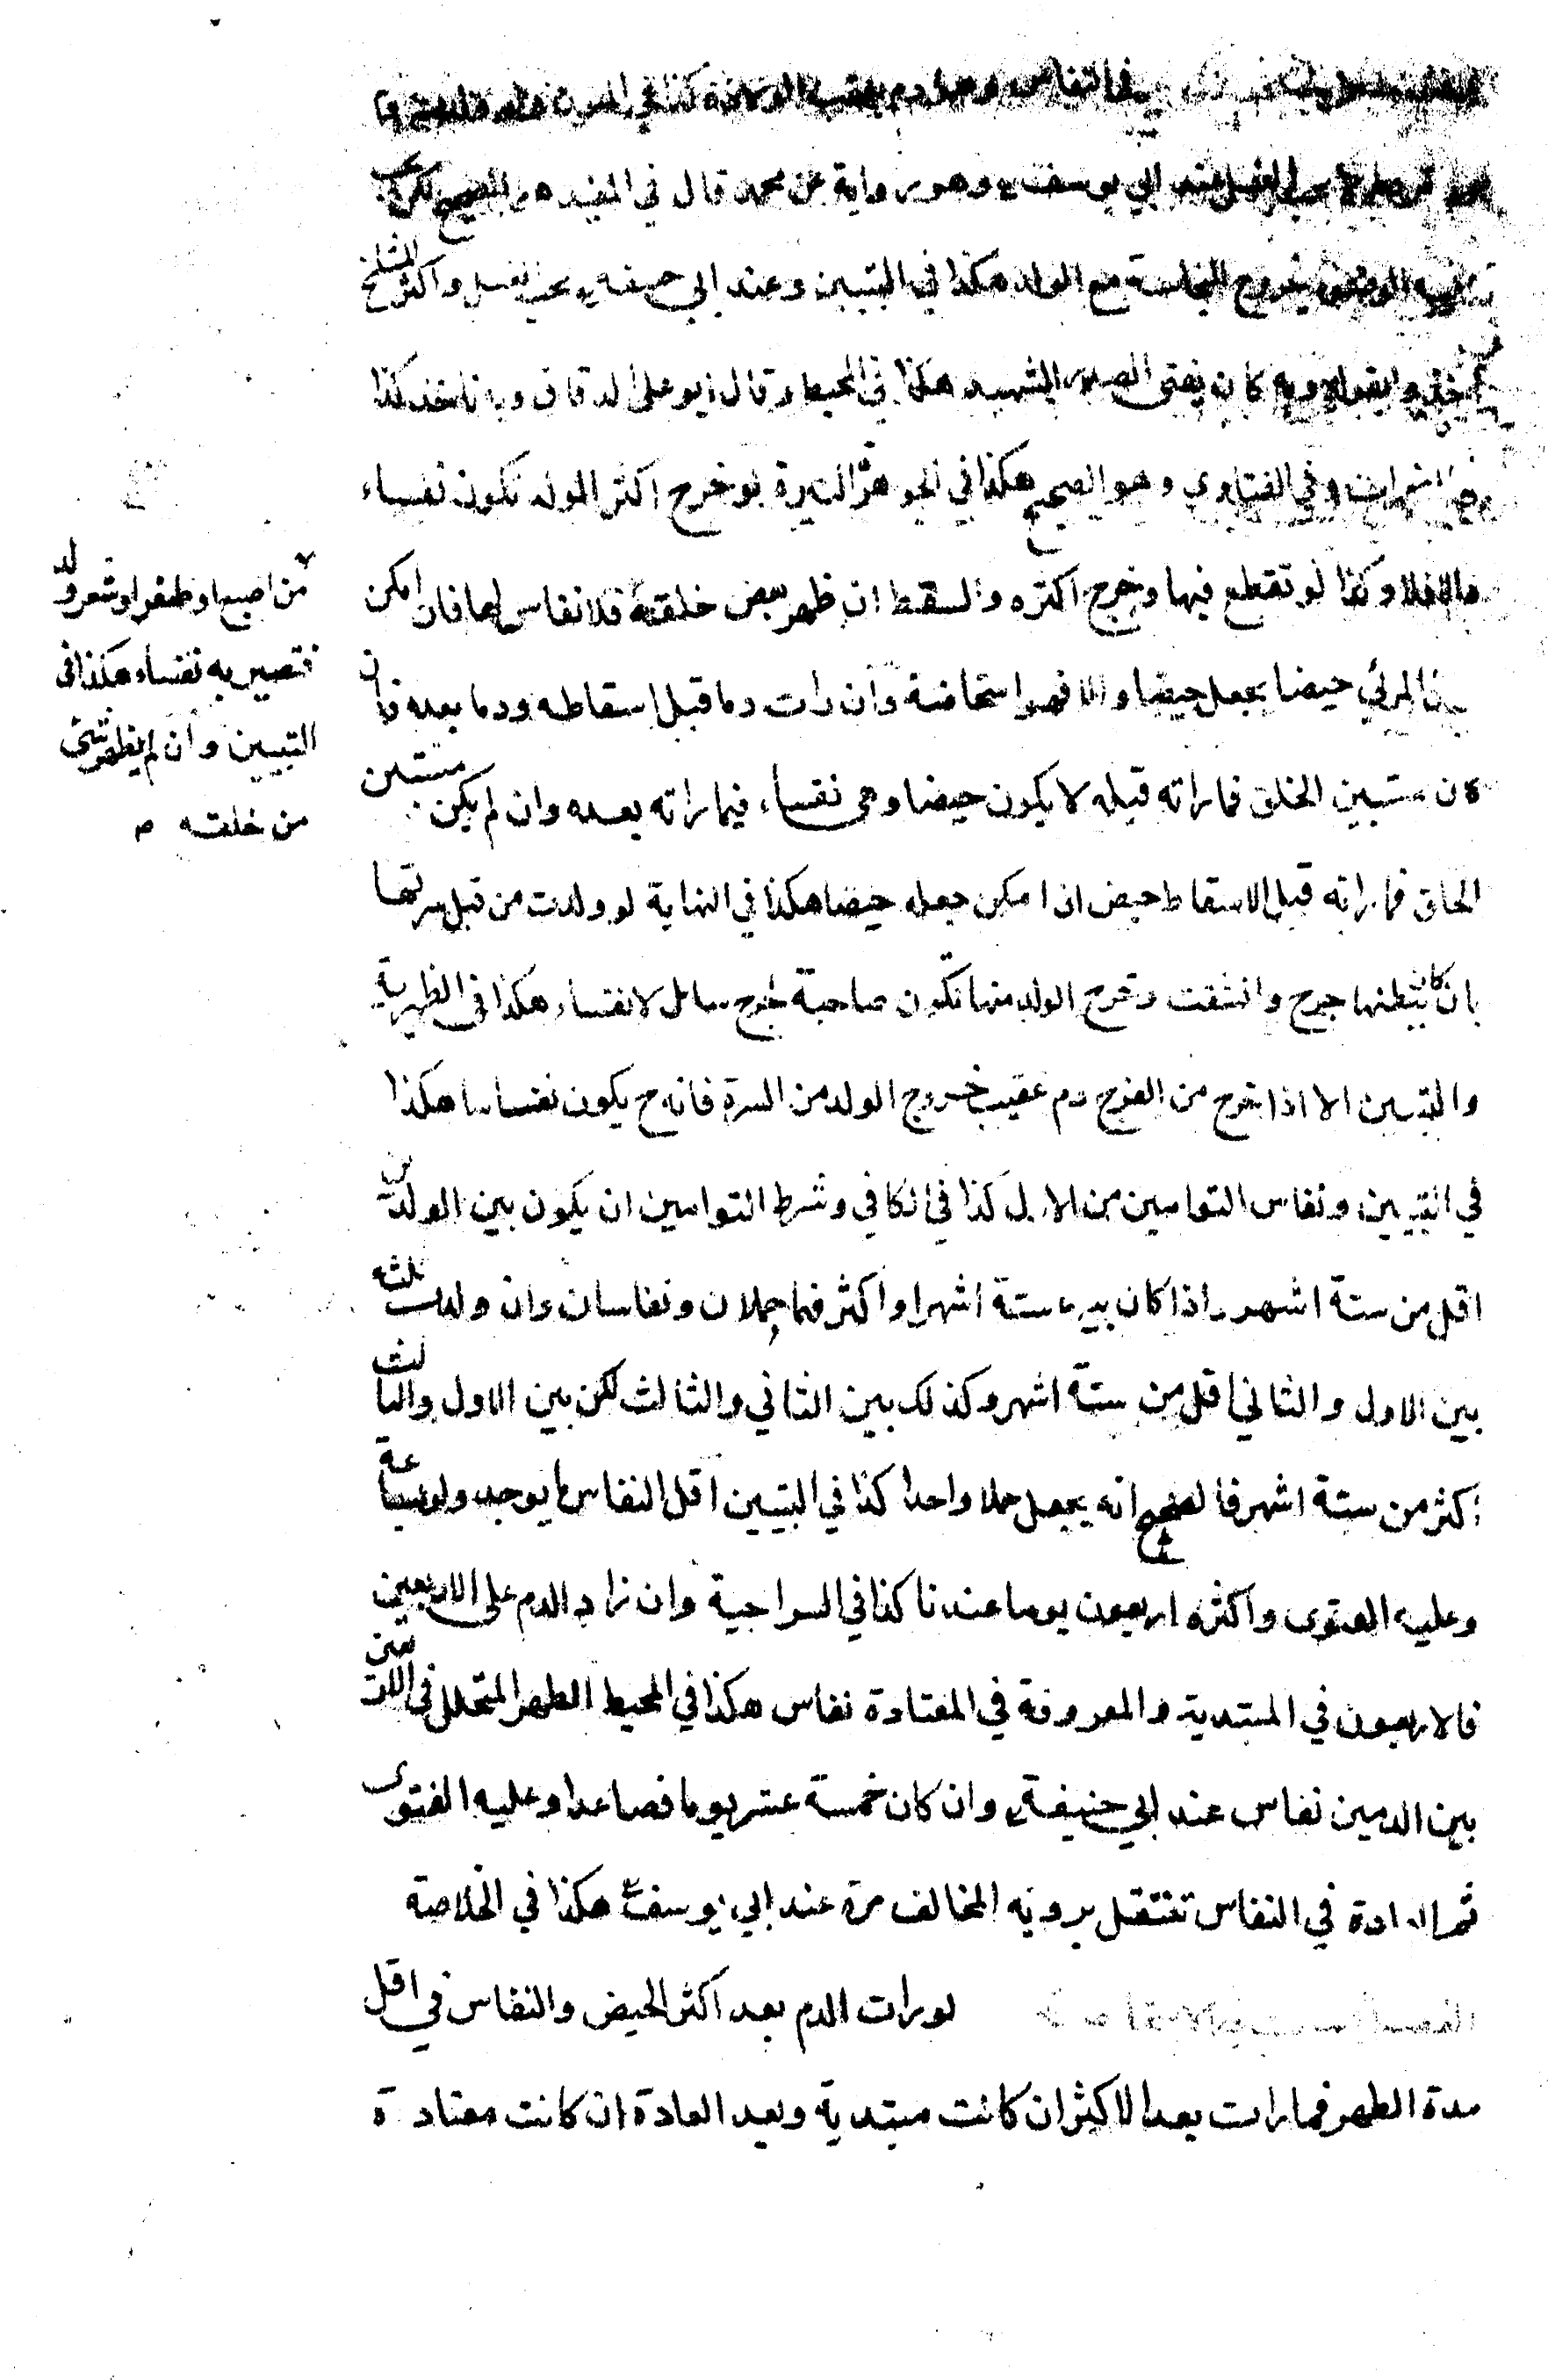 في النفاس وهو دم يعقب الولادة كذا في المتون فلو ولدت و
لا يجب الغسل عند ابي يوسف وهو رواية عن محمد قال في المفيد هو الصحيح لكن يجب
الوضوء بخروج النجاسة مع الولد هكذا في التبيين وعند ابي حنيفة يجب الغسل واكثر المشايخ
اخذوا بقوله وبه كان يفتي الصدر الشهيد هكذا في المحيط وقال ابو علي الدقاق وبه ناخذ كذا
في المضمرات وفي الفتاوي وهو الصحيح هكذا في الجوهرة النيرة لو خرج اكثر الولد تكون نفساء
والا فلا وكذا لو تقطع فيها وخرج اكثره والسقط ان ظهر بعض خلقته فلا نفاس لها فان امكن
جعل المرئي حيضا يجعل حيضا والا فهو استحاضة وان رات دما قبل اسقاطه ودما بعده فان
كان مستبين الخلق فما راته قبله لا يكون حيضا وهي نفساء فيما راته بعده وان لم يكن مستبين
الخلق فما راته قبل الاسقاط حيض ان امكن جعله حيضا هكذا في النهاية لو ولدت من قبل سرتها
بان كان ببطنها جرح وانشقت وخرج الولد منها تكون صاحبة جرح سائل لا نفساء هكذا في الظهيرية
والتبيين الا اذا خرج من الفرج دم عقيب خروج الولد من السرة فانه ح يكون نفاسا هكذا
في التبيين ونفاس التوامين من الاول كذا في الكافي وشرط التوامين ان يكون بين الولدين
اقل من ستة اشهر واذا كان بينهما ستة اشهر او اكثر فهما حملان ونفاسان وان ولدت ثلثه
بين الاول والثاني اقل من ستة اشهر وكذلك بين الثاني والثالث لكن بين الاول والثالث
اكثر من ستة اشهر فالصحيح انه يجعل حملا واحدا كذا في التبيين اقل النفاس ما يوجد ولو ساعة
وعليه الفتوى واكثره اربعون يوما عندنا كذا في السراجية وان زاد الدم على الاربعين
فالاربعون في المبتدية والمعروفة في المعتادة نفاس هكذا في المحيط الطهر المتخلل في الاربعين
بين الدمين نفاس عند ابي حنيفة وان كان خمسة عشر يوما فصاعدا وعليه الفتوى
ثم العادة في النفاس تنتقل بروية المخالف مرة عند ابي يوسف هكذا في الخلاصة
لو رات الدم بعد اكثر الحيض والنفاس في اقل
مدة الطهر فما رات بعد الاكثر ان كانت مبتدية وبعد العادة ان كانت معتادة
من اصبع او ظفر او شعر ولد
فتصير به نفساء هكذا في
التبيين وان لم يظهر شئ
من خلقته